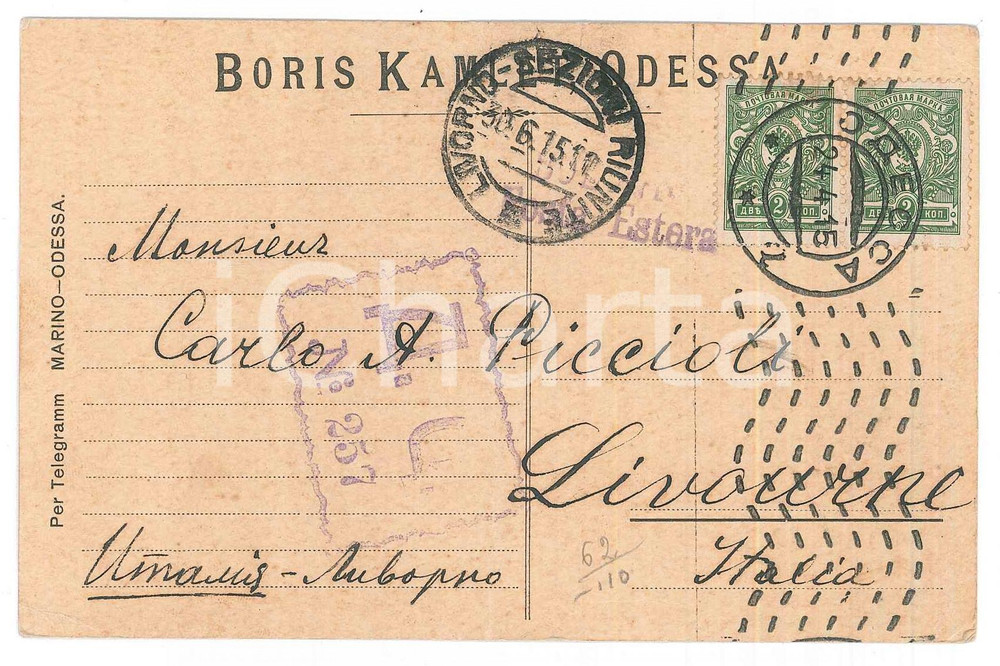 BORIS ODESSA
LIVORNO-SEZIONI RIUNITE
30.6.15
Estera
ПОЧТОВАЯ МАРКА ПОЧТОВАЯ МАРКА
2 2
ДВѢ КОП. ДВѢ КОП.
ОДЕССА
24 4 15
Per Telegramm MARINO-ODESSA.
Monsieur
Carlo A. Piccioli
Livourne
Italia
Италія - Ливорно
Д. Ц.
№ 257
62
110
iCharta